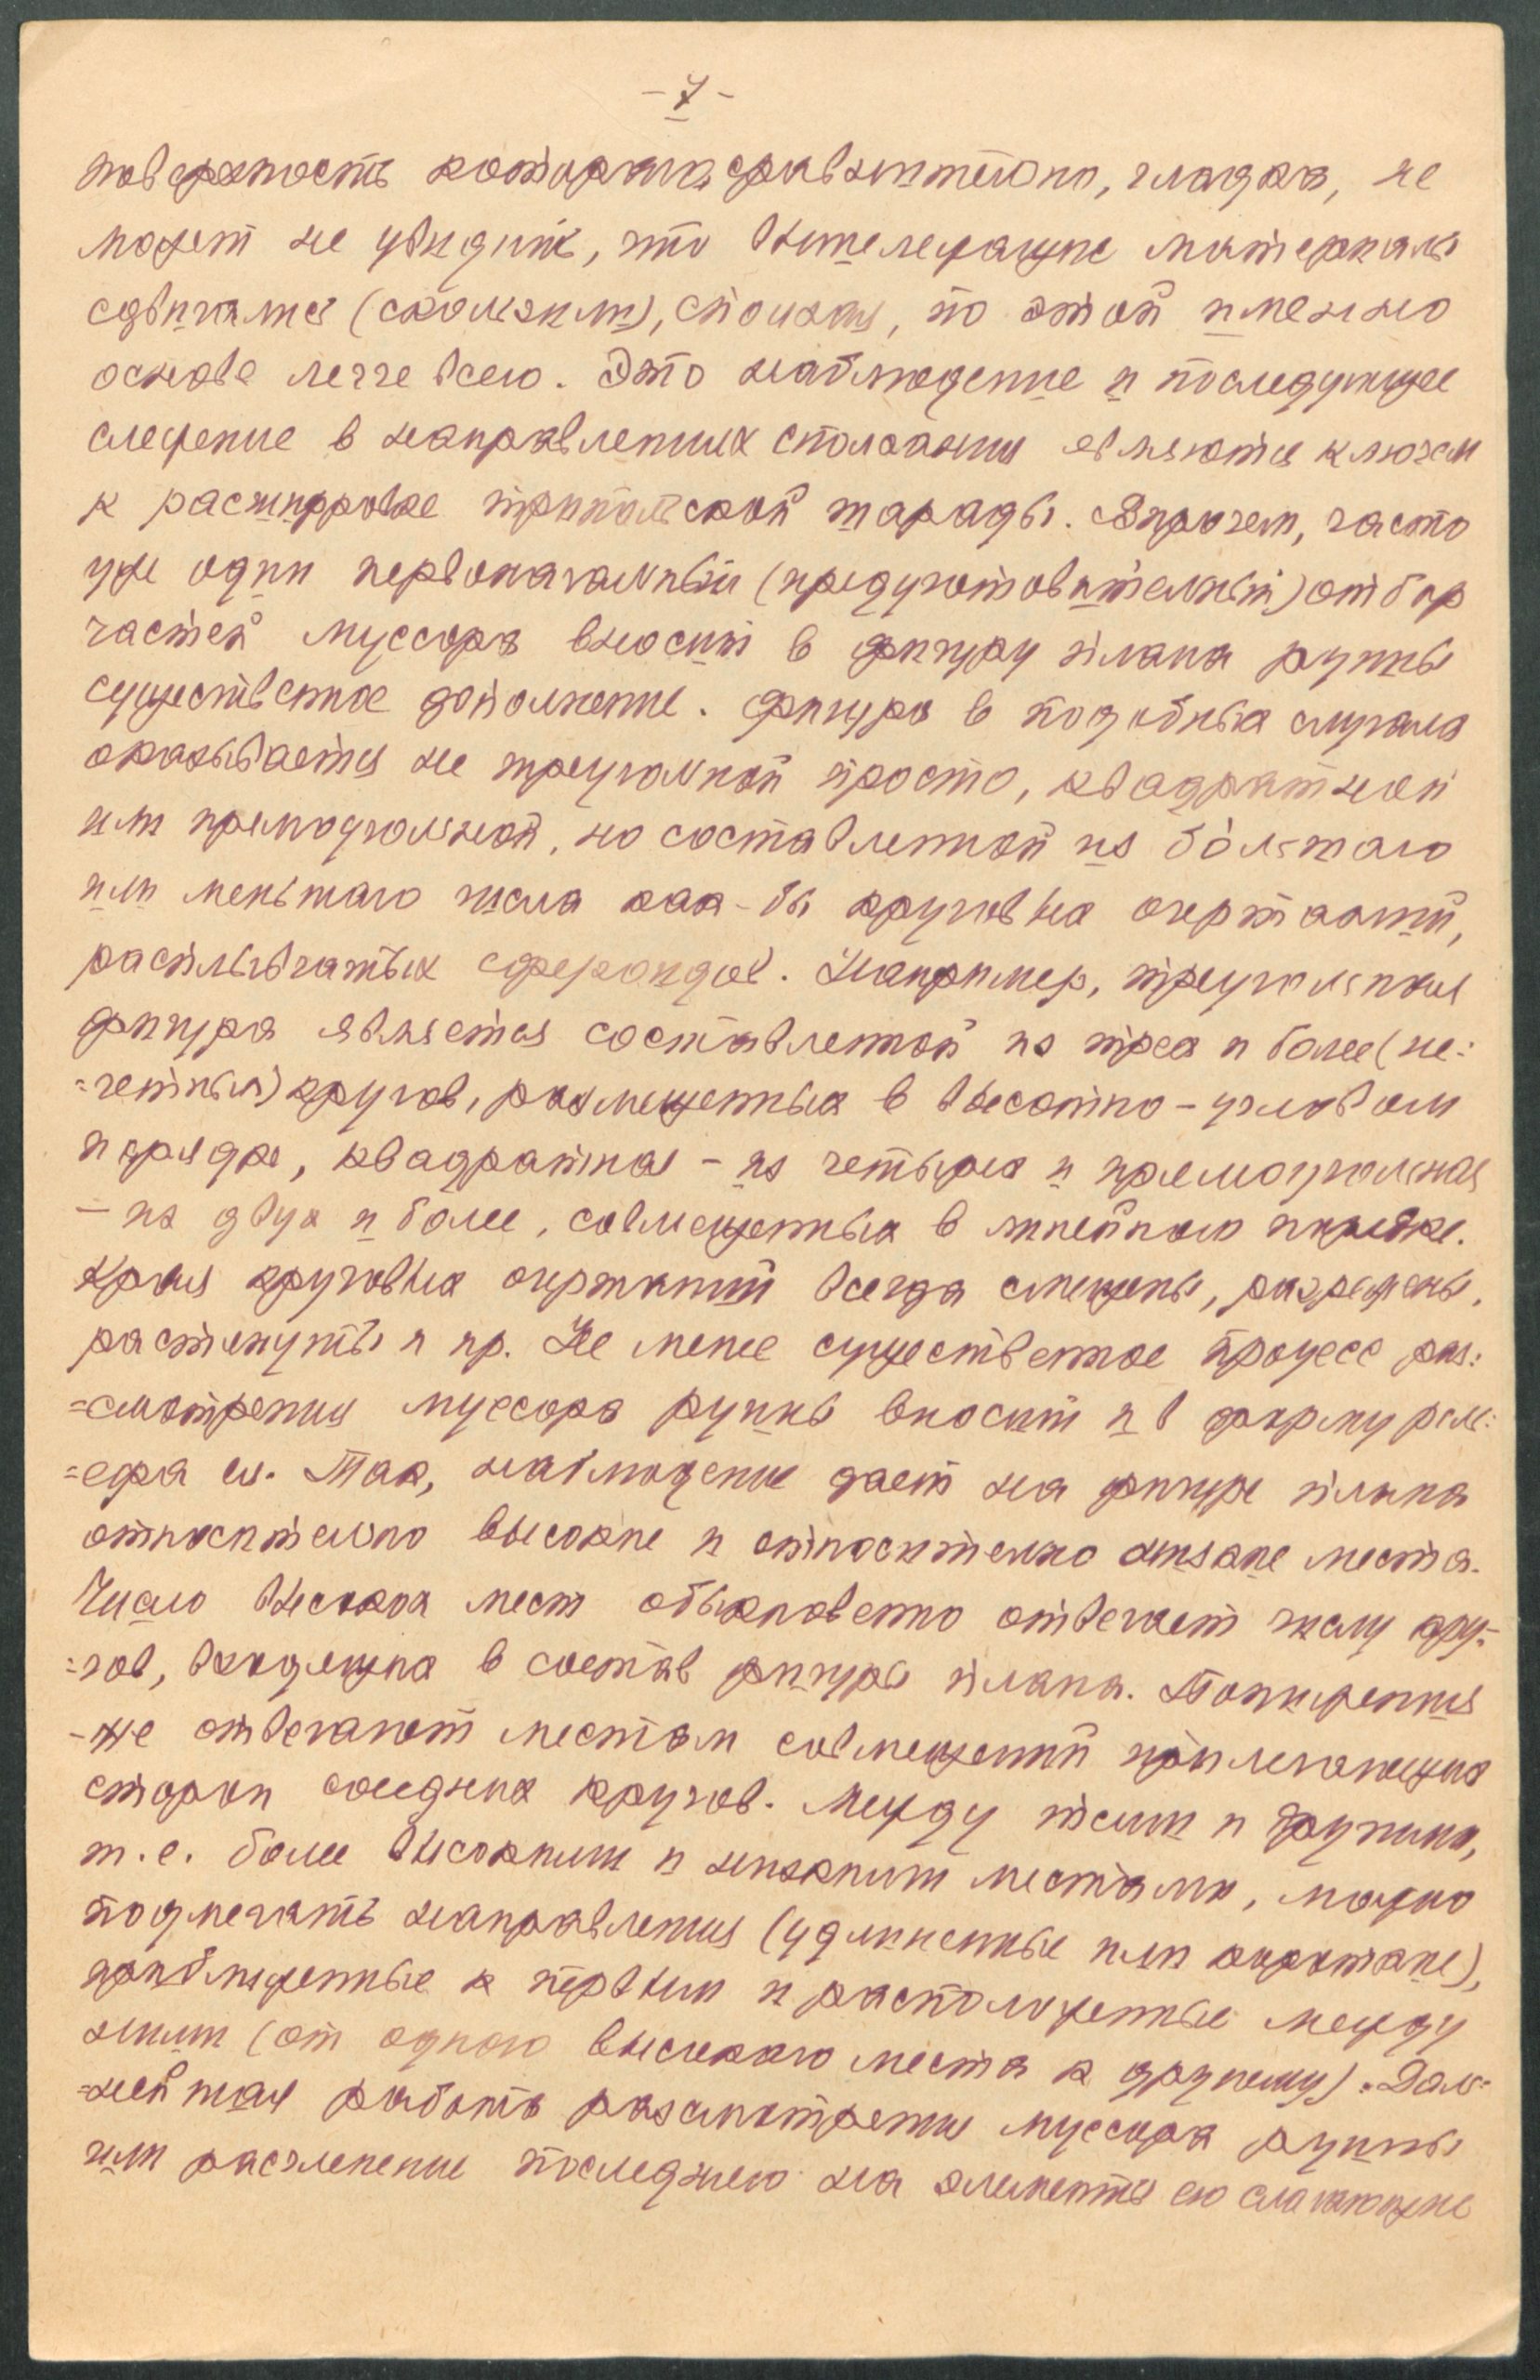 - 7 -
поверхность которых сравнительно, гладка, не
может не увидить, что вышележащие материалы
сдвигались (скользили), сползая, по этой именно
основе легче всего. Это наблюдение и последующее
слежение в направлениях сползания являются ключем
к расшифровке трипольской шарады. Впрочем, часто
уже один первоначальный (предуготовительный) отбор
частей муссора вносит в фигуру плана руины
существенное дополнение. Фигура в подобных случаях
оказывается не треугольной просто, квадратной
или прямоугольной, но составленной из бо́льшаго
или меньшаго числа как-бы круговых очертаний,
расплывчатых сфероидов. Например, треугольная
фигура является составленной из трех и более (не=
=четных) кругов, размещенных в высотно-угловом
порядке, квадратная - из четырех и прямоугольная
- из двух и более, совмещенных в линейном порядке.
Края круговых очертаний всегда смещены, разрежены,
растянуты и пр. Не менее существенное процесс раз=
=смотрения муссора руины вносит и в форму рель=
=ефа ея. Так, наблюдение дает на фигуре плана
относительно высокие и относительно низкие места.
Число высоких мест обыкновенно отвечает числу кру=
=гов, входящих в состав фигуры плана. Понижения
-же отвечают местам совмещений прилегающих
сторон соседних кругов. Между теми и другими,
т.е. более высокими и низкими местами, можно
подмечать направления (удлиненные или короткие),
приближенные к первым и расположенные между
ними (от одного высокаго места к другому). Даль=
=нейшая работа разсмотрения муссора руины
или расчленение последнего на элементы его слагающие